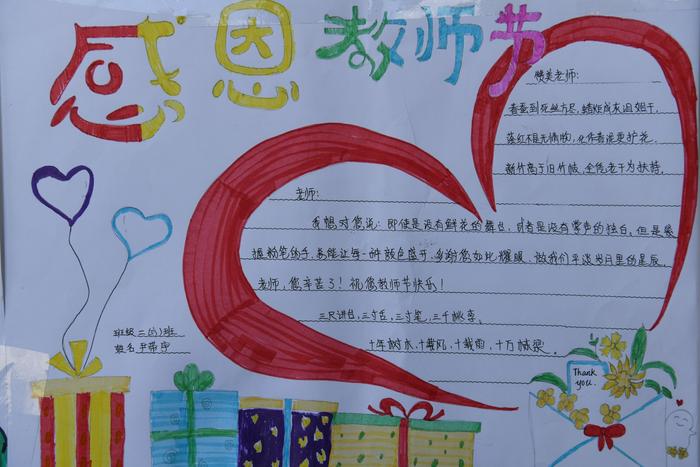 感恩教师节
赞美老师:
春蚕到死丝方尽,蜡炬成灰泪始干。
落红不是无情物,化作春泥更护花。
新竹高于旧竹枝,全凭老干为扶持。
老师:
我想对您说:即使是没有鲜花的舞台,或者是没有掌声的独白,但是桌
握粉笔的手,易能让每一种颜色盛开,多谢您如此耀眼,做我们平淡岁月里的星辰。
老师,您辛苦了!祝您教师节快乐!
三尺讲台,三寸舌,三寸笔,三千桃李。
十年树木,十载风,十载雨,十万栋梁。
班级 二(3)班
姓名
Thank
you.